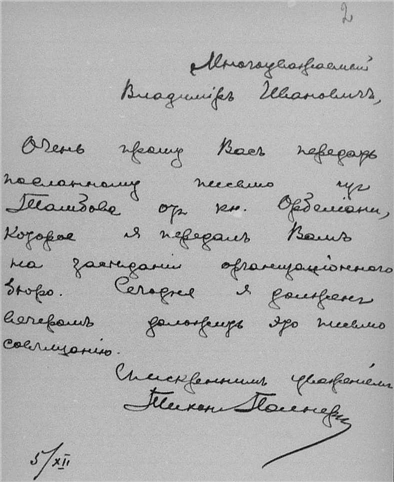 2
Многоуважаемый
Владимiръ Ивановичъ,
Очень прошу Васъ передать
посланному письмо изъ
Тамбова отъ кн. Орбелiани,
которое я передалъ Вамъ
на засѣданiи организацiоннаго
бюро. Сегодня я долженъ
вечеромъ доложить это письмо
совѣщанiю.
Съ искреннимъ уваженiемъ
Тихон Полнеръ
5/XII